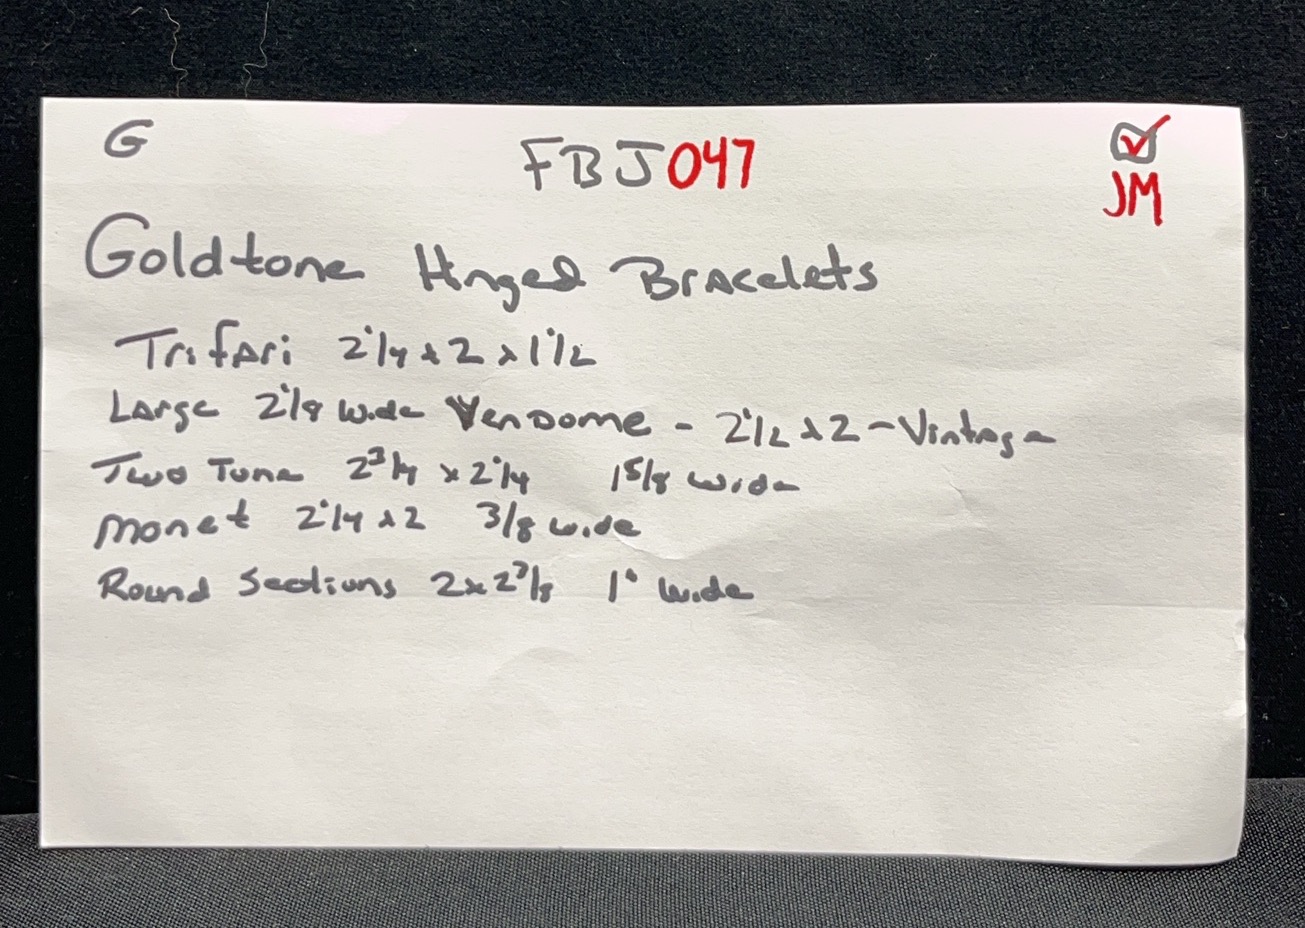 G FBJ047 ☑
JM
Goldtone Hinged Bracelets
Trifari 2 1/4 x 2 x 1 1/2
Large 2 1/8 wide Vendome - 2 1/2 x 2 - Vintage
Two Tone 2 3/4 x 2 1/4 1 5/8 wide
Monet 2 1/4 x 2 3/8 wide
Round Sections 2 x 2 3/8 1" wide